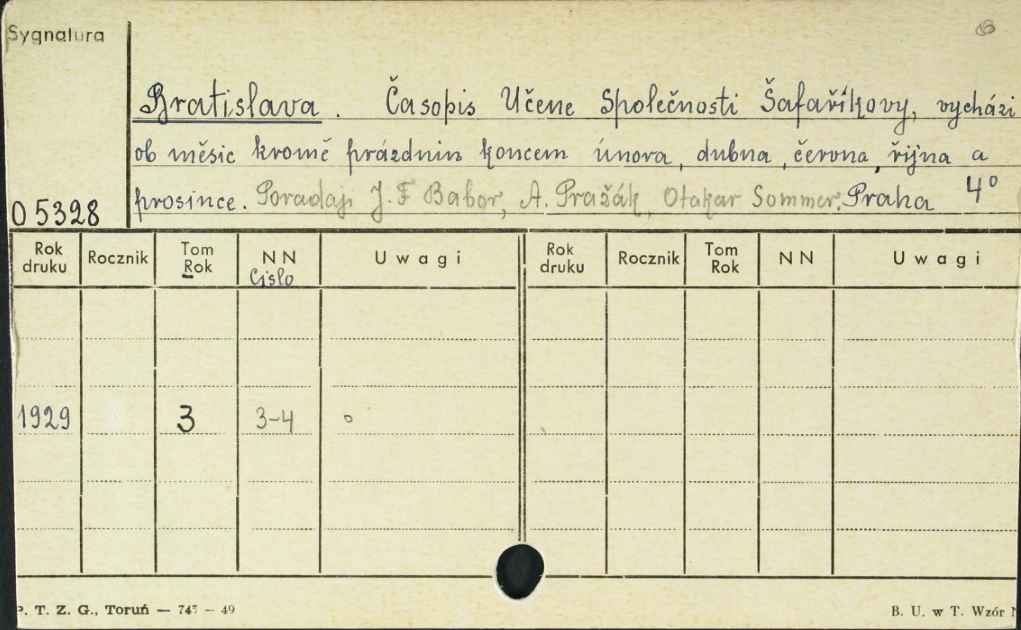 Sygnatura
Bratislava. Časopis Učene Společnosti Šafaříkovy, vycházi
ob měsic kromě prázdnin koncem února, dubna, června, řijna a
prosince. Poradaji J. F Babor, A. Pražák, Otakar Sommer. Praha 4°
O 5328
Rok druku Rocznik Tom Rok NN Cislo Uwagi Rok druku Rocznik Tom Rok NN Uwagi
1929 3 3-4 o
P. T. Z. G., Toruń — 745 — 49 B. U. w T. Wzór